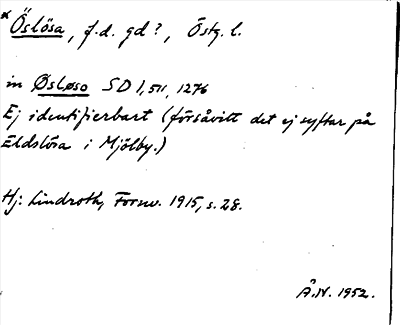 *Öslösa, f.d. gd?, Östg. l.
in Øsløso SD 1, 511, 1276
Ej identifierbart (försåvitt det ej syftar på
Eldslösa i Mjölby.)
Hj. Lindroth, Fornv. 1915, s. 28.
Å.N. 1952.